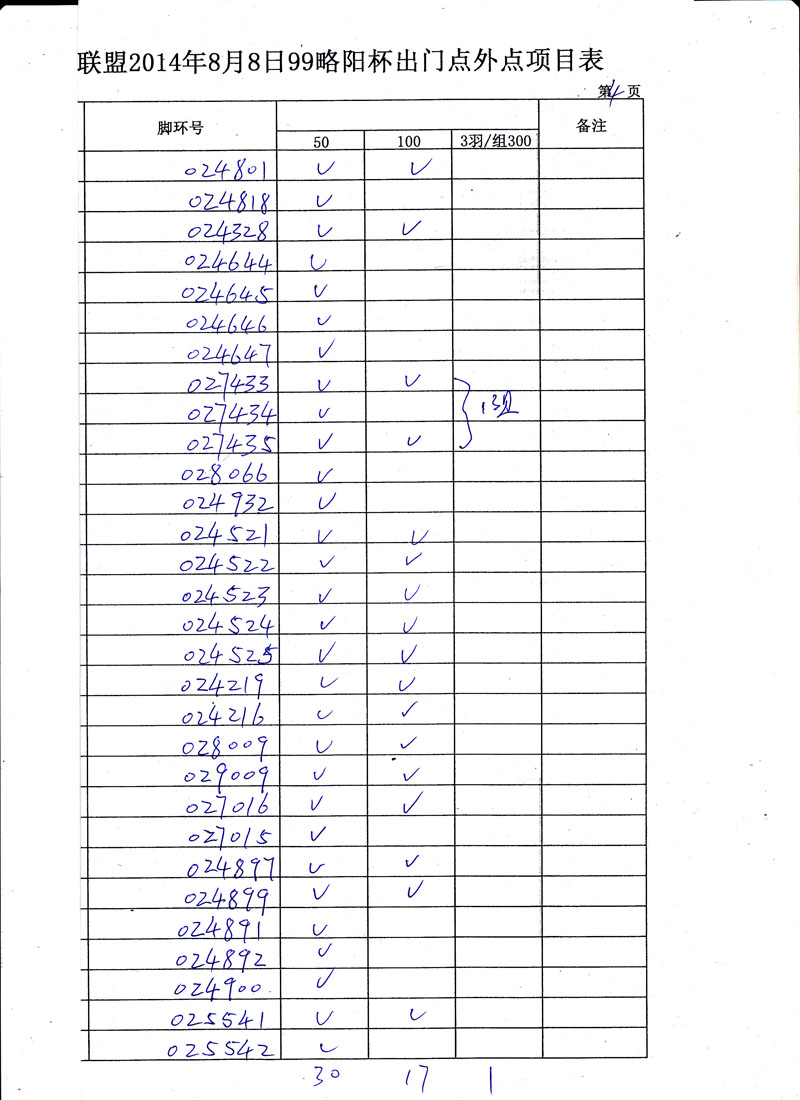 联盟2014年8月8日99略阳杯出门点外点项目表
第4页
脚环号 50 100 3羽/组300 备注
024801 ✓ ✓
024818 ✓
024328 ✓ ✓
024644 ✓
024645 ✓
024646 ✓
024647 ✓
027433 ✓ ✓
027434 ✓
027435 ✓ ✓
028066 ✓
024932 ✓
024521 ✓ ✓
024522 ✓ ✓
024523 ✓ ✓
024524 ✓ ✓
024525 ✓ ✓
024219 ✓ ✓
024216 ✓ ✓
028009 ✓ ✓
029009 ✓ ✓
027016 ✓ ✓
027015 ✓
024897 ✓ ✓
024899 ✓ ✓
024891 ✓
024892 ✓
024900 ✓
025541 ✓ ✓
025542 ✓
30 17 1